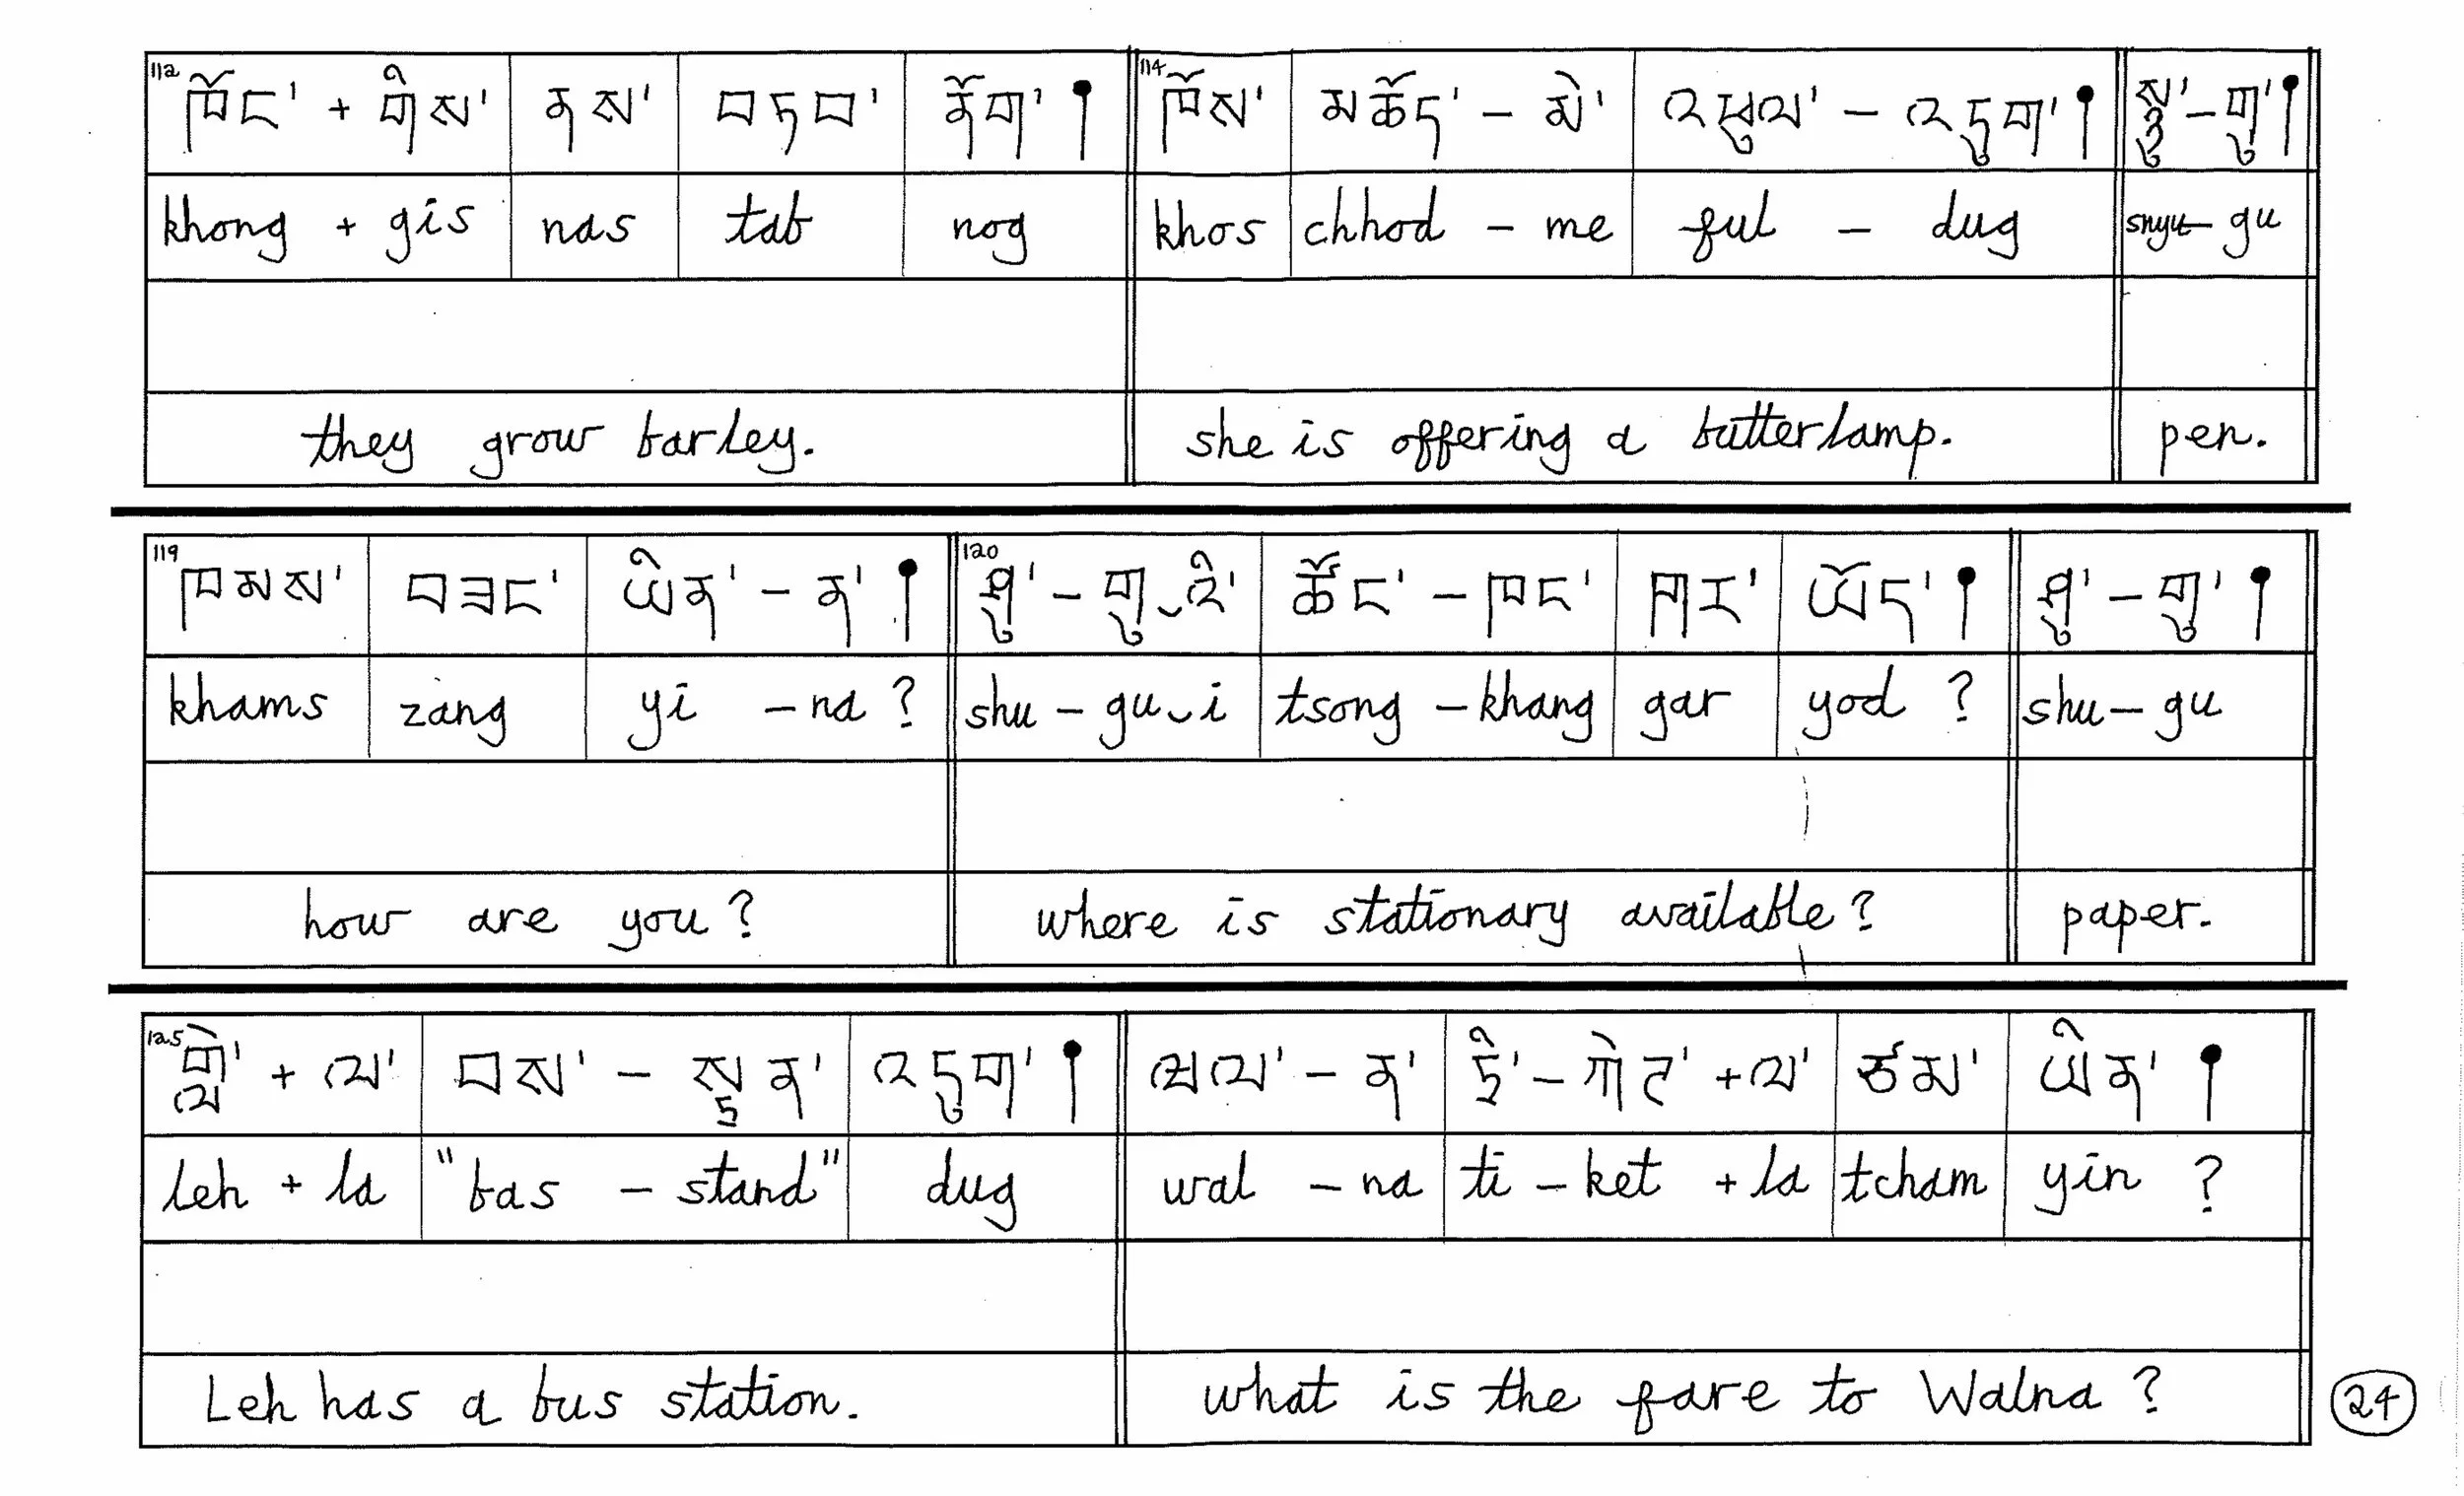 112 ཁོང་ + གིས་ ནས་ བཏབ་ ནོག་ །
khong + gis nas tab nog
they grow barley.
114 ཁོས་ མཆོད་ – མེ་ འཕུལ་ – འདུག་ །
khos chhod – me ful – dug
she is offering a butterlamp.
སྙུ་ – གུ་ །
snyu – gu
pen.
119 ཁམས་ བཟང་ ཡིན་ – ན་ །
khams zang yi – na ?
how are you ?
120 ཤུ་ – གུ་འི་ ཚོང་ – ཁང་ གར་ ཡོད་ །
shu – gu‿i tsong – khang gar yod ?
where is stationary available ?
ཤུ་ – གུ་ །
shu – gu
paper.
125 གླེ་ + ལ་ བས་ – སྟན་ འདུག་ །
leh + la "bas – stand" dug
Leh has a bus station.
ཝལ་ – ན་ ཊི་ – ཀེཊ་ + ལ་ ཙམ་ ཡིན་ །
wal – na ti – ket + la tcham yin ?
what is the fare to Walna ?
24